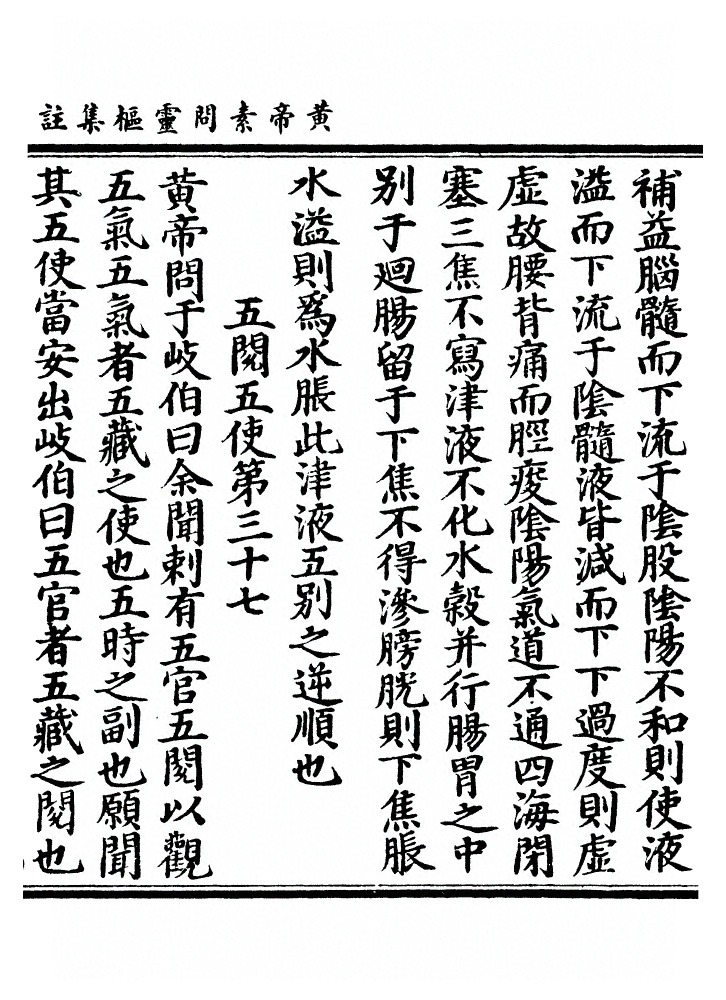 黃帝素問靈樞集註
補益腦髓而下流于陰股陰陽不和則使液
溢而下流于陰髓液皆減而下下過度則虛
虛故腰背痛而脛痠陰陽氣道不通四海閉
塞三焦不寫津液不化水穀并行腸胃之中
别于廻腸留于下焦不得滲膀胱則下焦脹
水溢則爲水脹此津液五别之逆順也
五閱五使第三十七
黃帝問于岐伯曰余聞刺有五官五閱以觀
五氣五氣者五藏之使也五時之副也願聞
其五使當安出岐伯曰五官者五藏之閱也